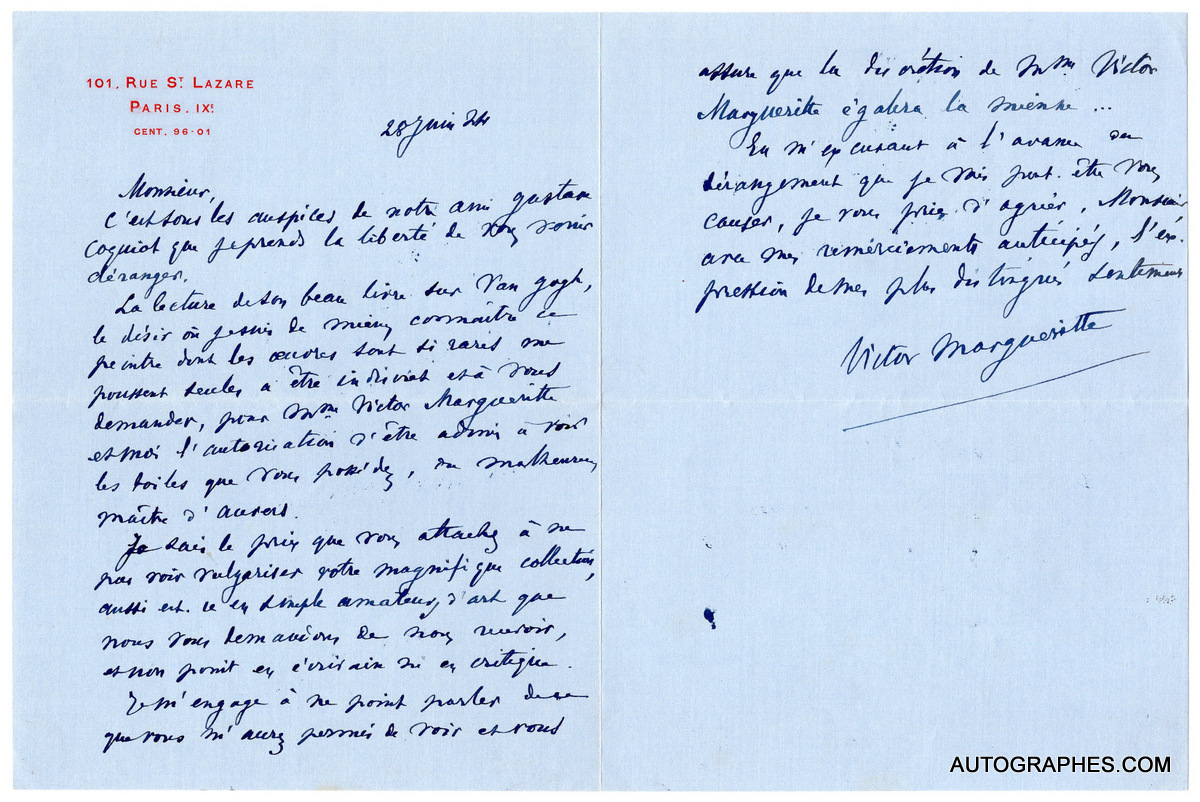 101, RUE ST LAZARE
PARIS. IXE
CENT. 96-01
28 Juin 24
Monsieur,
C'est sous les auspices de notre ami Gustave
Coquiot que je prends la liberté de vous venir
déranger.
La lecture de son beau livre sur Van Gogh,
le désir où je suis de mieux connaître ce
peintre dont les œuvres sont si rares me
poussent seules à être indiscret et à vous
demander, pour Mme Victor Margueritte
et moi l'autorisation d'être admis à voir
les toiles que vous possédez, du malheureux
maître d'Auvers.
Je sais le prix que vous attachez à ne
pas voir vulgariser votre magnifique collection,
aussi est-ce en simple amateurs d'art que
nous vous demandons de nous recevoir,
et non point en écrivain ni en critique.
Je m'engage à ne point parler de ce
que vous m'aurez permis de voir et vous
assure que la discrétion de Mme Victor
Margueritte égalera la mienne ...
En m'excusant à l'avance du
dérangement que je vais peut-être vous
causer, je vous prie d'agréer, Monsieur
avec mes remerciements anticipés, l'ex-
pression de mes plus distingués sentiments
Victor Margueritte
AUTOGRAPHES.COM